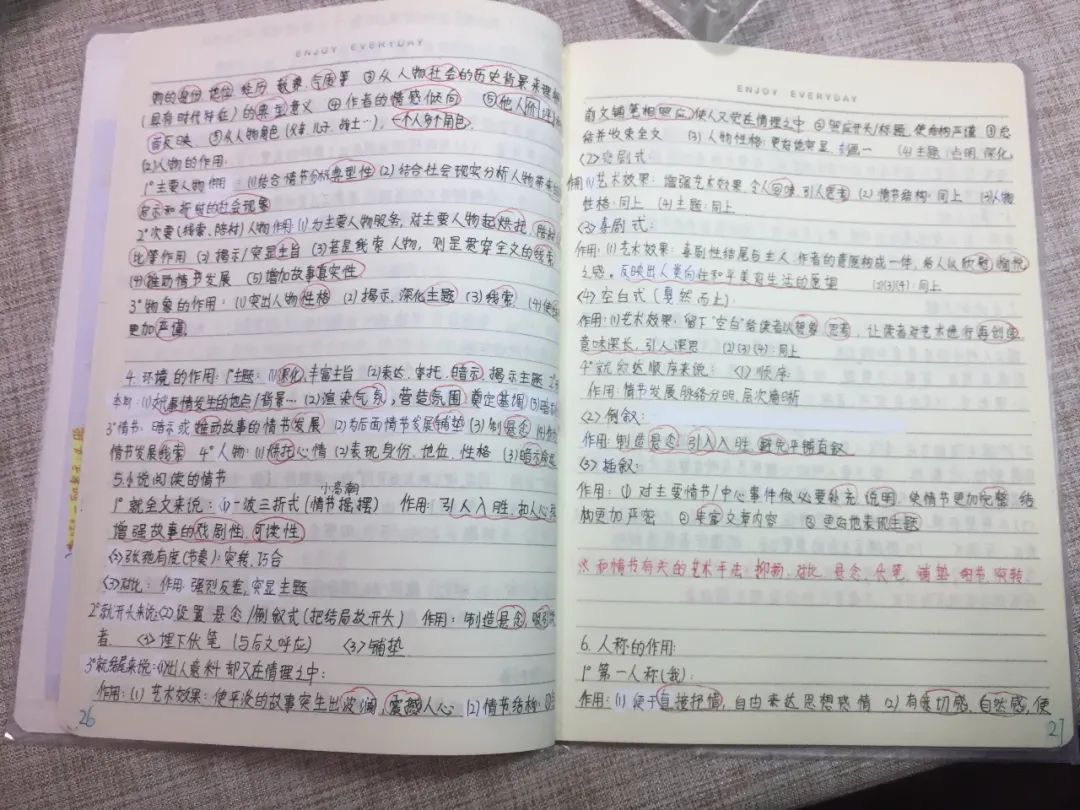 ENJOY EVERYDAY
物的身份、地位、经历、教养、气质等 ③从人物社会的历史背景来理解
(具有时代特征)的典型意义 ④作者的情感倾向 ⑤他人评价
⑤从人物角色(父亲、儿子、战士…),一个人多个角色.
(2)人物的作用:
1°主要人物作用:(1)结合情节分析典型性(2)结合社会现实分析人物带来的
启示和折射的社会现象
2°次要(线索、陪衬)人物作用:(1)为主要人物服务,对主要人物起烘托、陪衬
比等作用 (2)揭示/突显主旨 (3)若是线索人物,则是贯穿全文的线索
(4)推动情节发展 (5)增加故事真实性
3°物象的作用:(1)突出人物性格 (2)揭示、深化主题 (3)线索 (4)使
更加严谨.
4.环境的作用:1°主题:(1)深化、丰富主旨 (2)表达、寄托、暗示、揭示主题 2°
(1)故事情发生的地点/背景… (2)渲染气氛,营造氛围,奠定基调 (3)暗
3°情节:暗示或推动故事的情节发展 (2)为后面情节发展铺垫 (3)制悬念 (4)
情节发展线索 4°人物:(1)烘托心情 (2)表现身份、地位、性格 (3)暗示命运
5.小说阅读的情节
小高潮
1°就全文来说:(1)一波三折式(情节摇摆) 作用:引人入胜,扣人心弦
增强故事的戏剧性,可读性
<2>张弛有度(节奏):突转,巧合
<3>对比:作用:强烈反差,突显主题
2°就开头来说:<1>设置悬念/倒叙式(把结局放开头) 作用:制造悬念,吸引
者 <2>埋下伏笔(与后文呼应) <3>铺垫
3°就结尾来说:<1>出人意料 却又在情理之中:
作用:(1)艺术效果:使平淡的故事突生出波澜,震撼人心 (2)情节结构:①
26
ENJOY EVERYDAY
前文铺笔相照应,使人又觉在情理之中 ②照应开头/标题,使结构严谨 ③总
结并收束全文 (3)人物性格:更好地突显、刻画一 (4)主题:点明、深化
<2>悲剧式:
作用:(1)艺术效果:增强艺术效果,令人回味,引人思考 (2)情节结构:同上 (3)人物
性格:同上 (4)主题:同上
<3>喜剧式:
作用:(1)艺术效果:喜剧性结尾与主人、作者的意愿构成一体,给人以欣慰、愉悦
之感,反映出人类向往和平美好生活的愿望 (2)(3)(4):同上
<4>空白式(戛然而止):
作用:(1)艺术效果:留下"空白"给读者以想象、思考,让读者对艺术进行再创造
意味深长,引人深思 (2)(3)(4):同上
4°就叙述顺序来说:<1>顺序
作用:情节发展脉络分明,层次清晰
<2>倒叙:
作用:制造悬念,引人入胜,避免平铺直叙
<3>插叙:
作用:①对主要情节/中心事件做必要补充、说明,使情节更加完整,结
构更加严密 ②丰富文章内容 ③更好地表现主题
※和情节有关的艺术手法:抑扬、对比、悬念、伏笔、铺垫、细节、突转
6.人称的作用:
1°第一人称(我):
作用:(1)便于直接抒情,自由表达思想感情 (2)有亲切感,自然感,使
27